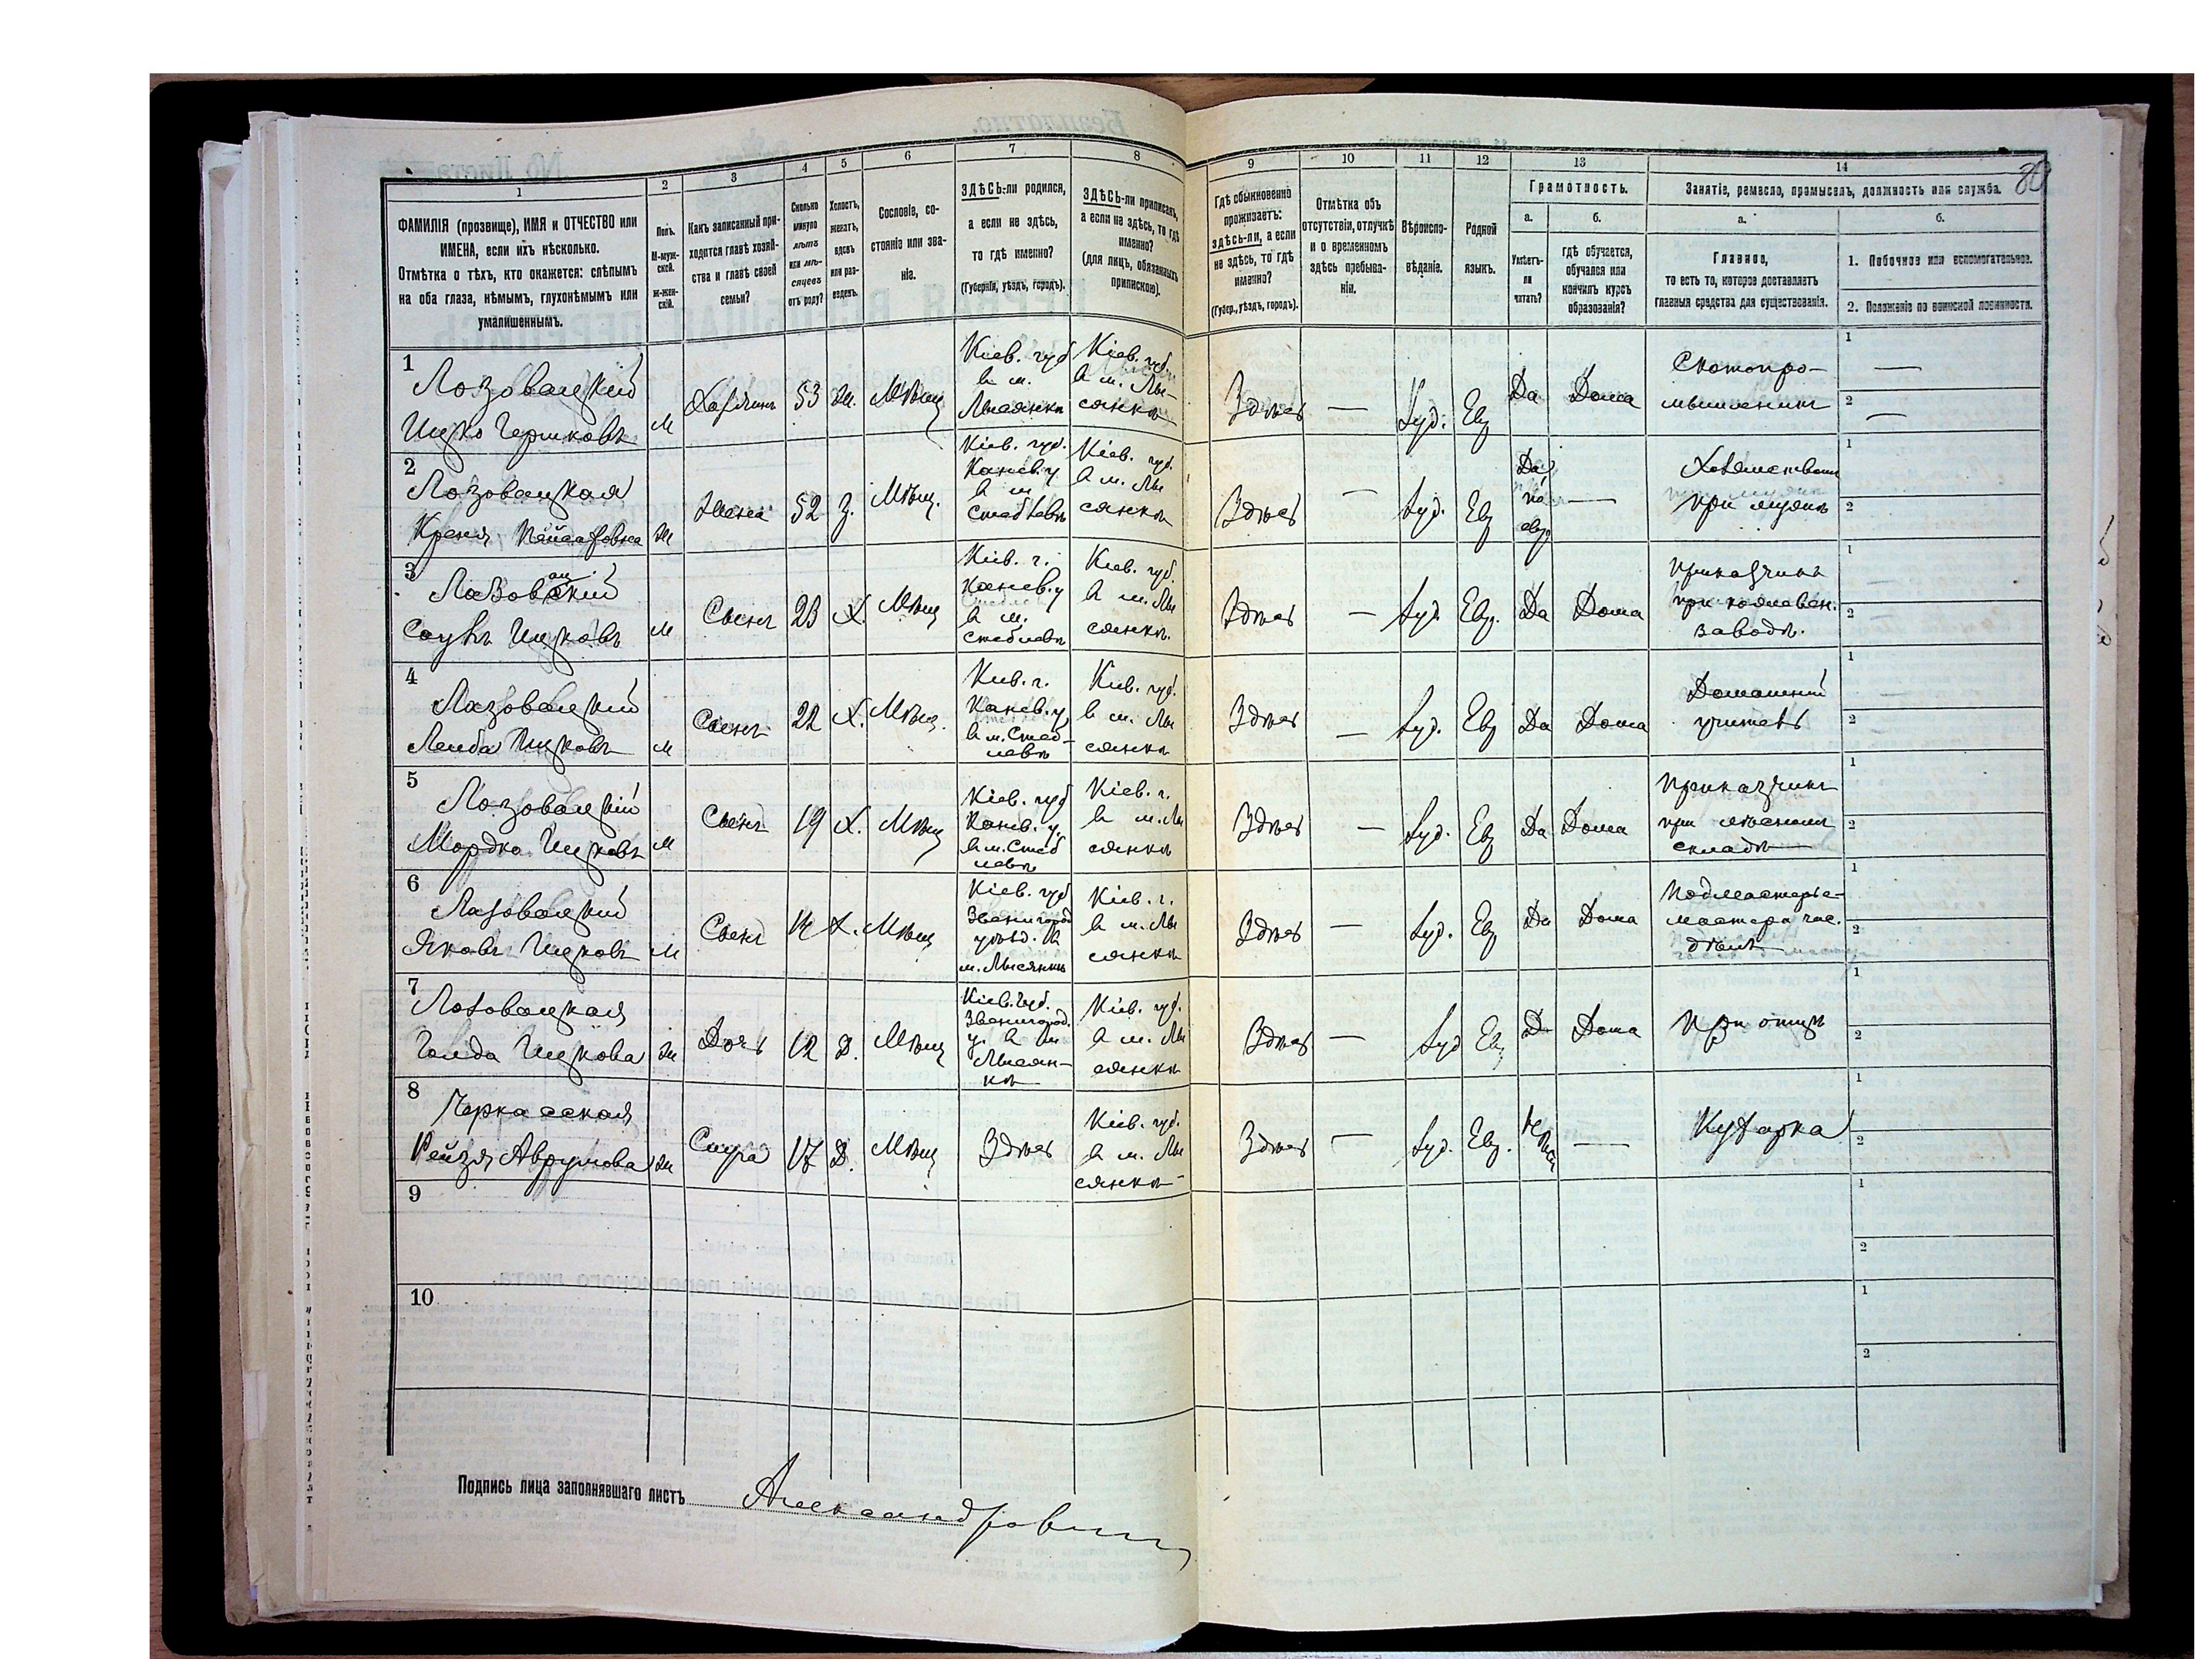 80
1
ФАМИЛІЯ (прозвище), ИМЯ и ОТЧЕСТВО или
ИМЕНА, если ихъ нѣсколько.
Отмѣтка о тѣхъ, кто окажется: слѣпымъ
на оба глаза, нѣмымъ, глухонѣмымъ или
умалишеннымъ.
2
Полъ.
М-муж-
ской.
Ж-жен-
скій.
3
Какъ записанный при-
ходится главѣ хозяй-
ства и главѣ своей
семьи?
4
Сколько
минуло
лѣтъ
или мѣ-
сяцевъ
отъ роду?
5
Холостъ,
женатъ,
вдовъ
или раз-
веденъ.
6
Сословіе, со-
стояніе или зва-
ніе.
7
ЗДѢСЬ-ли родился,
а если не здѣсь,
то гдѣ именно?
(Губернія, уѣздъ, городъ).
8
ЗДѢСЬ-ли приписанъ,
а если не здѣсь, то гдѣ
именно?
(для лицъ, обязанныхъ
припискою).
9
Гдѣ обыкновенно
проживаетъ:
здѣсь-ли, а если
не здѣсь, то гдѣ
именно?
(Губер., уѣздъ, городъ).
10
Отмѣтка объ
отсутствіи, отлучкѣ
и о временномъ
здѣсь пребыва-
ніи.
11
Вѣроиспо-
вѣданіе.
12
Родной
языкъ.
13
Грамотность.
а.
Умѣетъ-
ли
читать?
б.
гдѣ обучается,
обучался или
кончилъ курсъ
образованія?
14
Занятіе, ремесло, промыселъ, должность или служба.
а.
Главное,
то есть то, которое доставляетъ
главныя средства для существованія.
б.
1. Побочное или вспомогательное.
2. Положеніе по воинской повинности.
1
Лозовацкій
Ицко Гершковъ
М
Хозяинъ
53
Ж.
Мѣщ
Кіев. губ
в м.
Лысянкѣ
Кіев. губ.
в м. Лы-
сянкѣ
Здѣсь
—
Іуд.
Евр
Да
Дома
Скотопро-
мышленникъ
1 —
2 —
2
Лозовацкая
Ж
Жена
52
З.
Мѣщ.
Кіев. губ.
Канев. у
в м
Стеблевѣ
Кіев. губ.
в м. Лы
сянкѣ
Здѣсь
—
Іуд.
Евр
Да
по
евр
—
при мужѣ
1
2
3
Лозовацкій
Ицковъ
М
Сынъ
23
Х.
Мѣщ
Кіев. г.
Канев. у
в м.
Стеблевѣ
Кіев. губ.
в м. Лы
сянкѣ.
Здѣсь
—
Іуд
Евр.
Да
Дома
Приказчикъ
при
заводѣ.
1
2
4
Лозовацкій
Лейба Ицковъ
М
Сынъ
22
Х.
Мѣщ.
Кіев. г.
Канев. у,
в м. Стеб-
левѣ
Кіев. губ.
в м. Лы
сянкѣ
Здѣсь
—
Іуд.
Евр
Да
Дома
Домашній
учитель
1
2
5
Лозовацкій
Мордко Ицковъ
М
Сынъ
19
Х.
Мѣщ
Кіев. губ
Канев. у.
в м. Стеб
левѣ
Кіев. г.
в м. Лы
сянкѣ
Здѣсь
—
Іуд.
Евр
Да
Дома
Приказчикъ
при лѣсномъ
складѣ
1
2
6
Лозовацкій
Яковъ Ицковъ
М
Сынъ
14
Х.
Мѣщ
Кіев. губ
Звенигород
уѣзд. в
м. Лысянкѣ
Кіев. г.
в м. Лы
сянкѣ
Здѣсь
—
Іуд.
Евр
Да
Дома
Подмастерье
мастера час.
дѣлъ
1
2
7
Лозовацкая
Голда Ицкова
Ж
Дочь
12
Д.
Мѣщ
Кіев. губ.
Звенигород.
у. в м
Лысян-
кѣ
Кіев. губ.
в м. Лы
сянкѣ
Здѣсь
—
Іуд
Евр
Да
Дома
При отцѣ
1
2
8
Черкасская
Рейзя Аврумова
Ж
Слуга
17
Д.
Мѣщ
Здѣсь
Кіев. губ.
в м. Лы
сянкѣ
Здѣсь
—
Іуд.
Евр.
—
Кухарка
1
2
9
1
2
10
1
2
Подпись лица заполнявшаго листъ